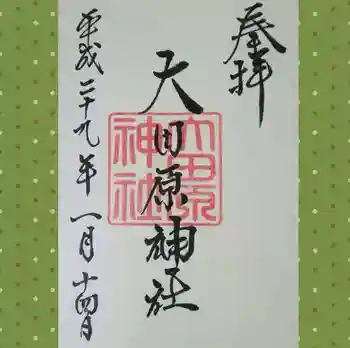 奉拝
大田原神社
平成二十九年一月十四日
大田原
神社